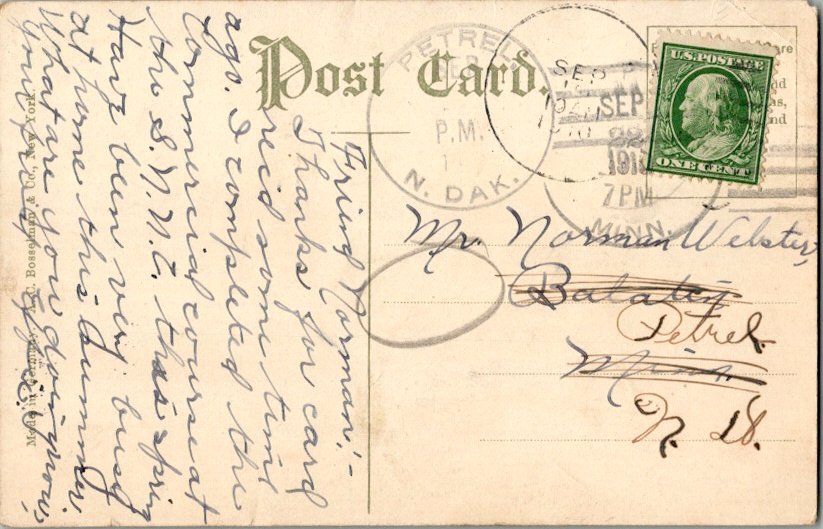 Post Card.
PETREL
SEP
P.M.
N. DAK.
SEP
SEP
22
1910
7PM
MINN.
U.S. POSTAGE
ONE CENT
Mr. Norman Webster,
Balaton
Petrel
Minn.
N. D.
Friend Norman:-
Thanks for card
rec'd some time
ago. I completed the
Commercial course at
the S.N.N.C. this spring
Have been very busy
at home this summer.
What are you doing now,
Your friend
Made in Germany. A. C. Bosselman & Co., New York.